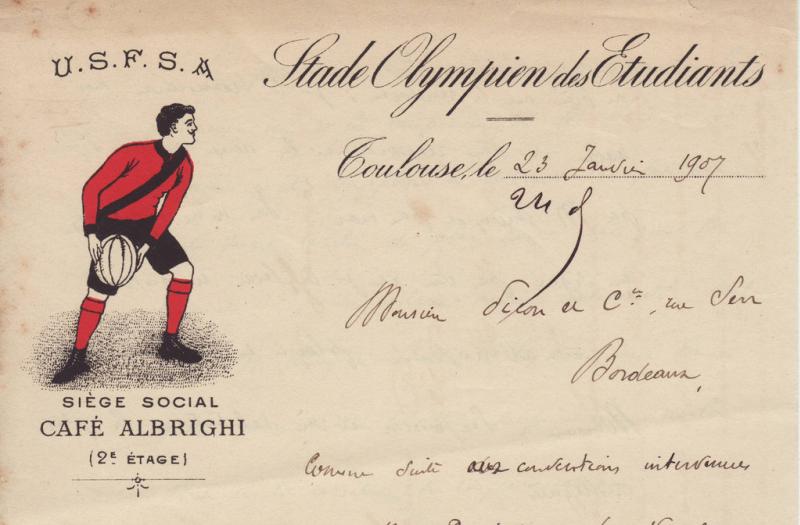 U.S.F.S.A
Stade Olympien des Etudiants
Toulouse, le 23 Janvier 1907
Monsieur Dixon et Cie, rue
Bordeaux,
SIÈGE SOCIAL
CAFÉ ALBRIGHI
(2E ÉTAGE)
Comme suite aux conventions intervenues